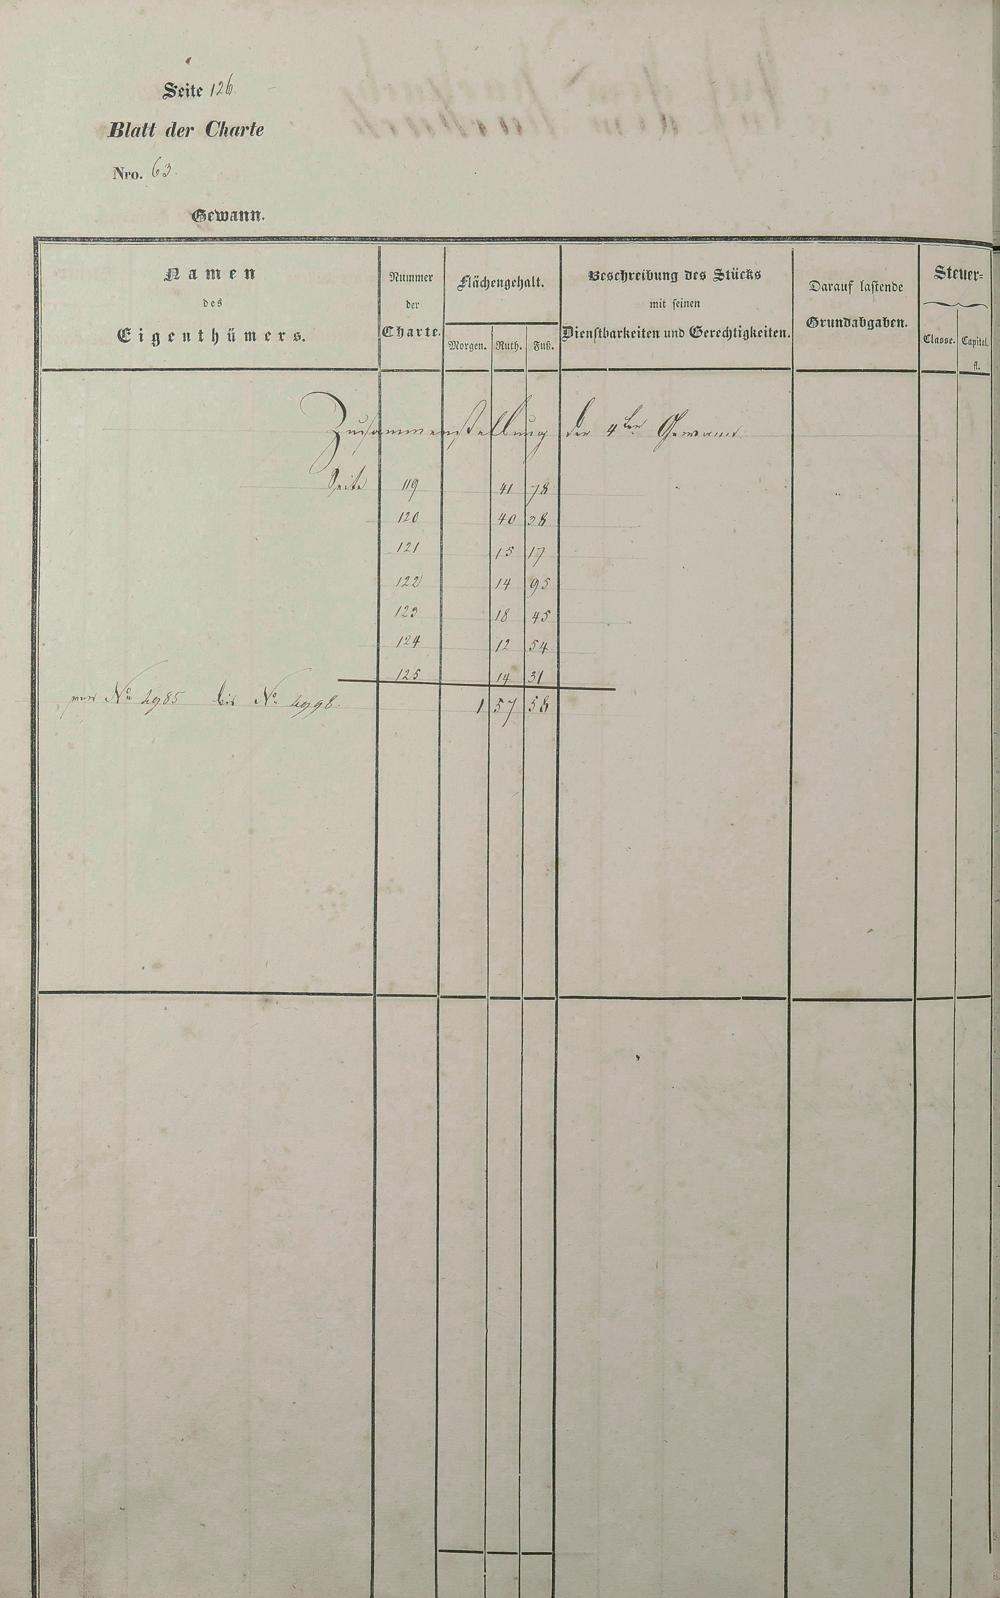 Seite 126.
Blatt der Charte
Nro. 63.
Gewann.
Namen
des
Eigenthümers.
Nummer
der
Charte.
Flächengehalt.
Morgen. Ruth. Fuß.
Beschreibung des Stücks
mit seinen
Dienstbarkeiten und Gerechtigkeiten.
Darauf lastende
Grundabgaben.
Steuer-
Classe. Capital.
fl.
Zusammenstellung der 4ten Gewann.
Seite 119 41 78
120 40 38
121 15 17
122 14 95
123 18 45
124 12 54
125 14 31
von No 4985 bis No 4998. 1 57 58